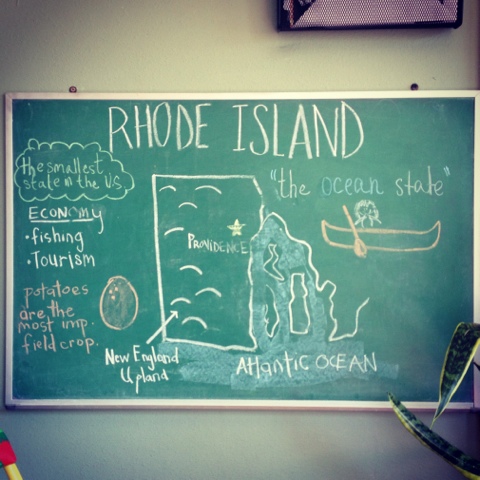 RHODE ISLAND
the smallest
state in the U.S.
"the ocean state"
ECONOMY
• fishing
• Tourism
PROVIDENCE
potatoes
are the
most imp.
field crop.
New England
Upland
Atlantic OCEAN